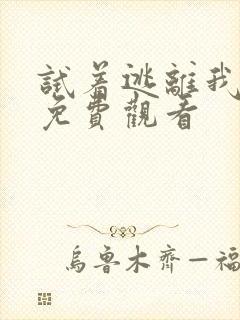 試着逃離我
免費觀看
烏魯木齊—福